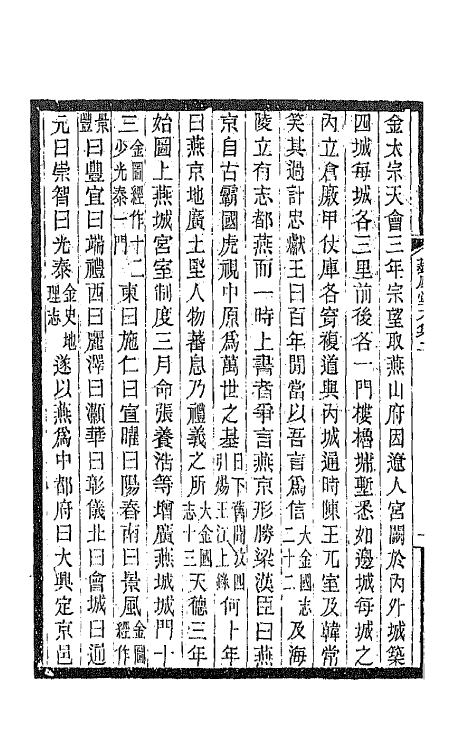 金太宗天會三年宗望取燕山府因遼人宮闕於內外城築
四城每城各三里前後各一門樓櫓墉塹悉如邊城每城之
內立倉厫甲仗庫各穿複道與內城通時陳王兀室及韓常
笑其過計忠獻王曰百年閒當以吾言爲信大金國志二十二及海
陵立有志都燕而一時上書者爭言燕京形勝梁漢臣曰燕
京自古霸國虎視中原爲萬世之基日下舊聞攷四引煬王江上錄何卜年
曰燕京地廣土堅人物蕃息乃禮義之所大金國志十三天德三年
始圖上燕城宮室制度三月命張養浩等增廣燕城城門十
三金圖經作十二少光泰一門東曰施仁曰宣曜曰陽春南曰景風金圖經作
景豐曰豐宜曰端禮西曰麗澤曰灝華曰彰儀北曰會城曰通
元曰崇智曰光泰金史地理志遂以燕爲中都府曰大興定京邑